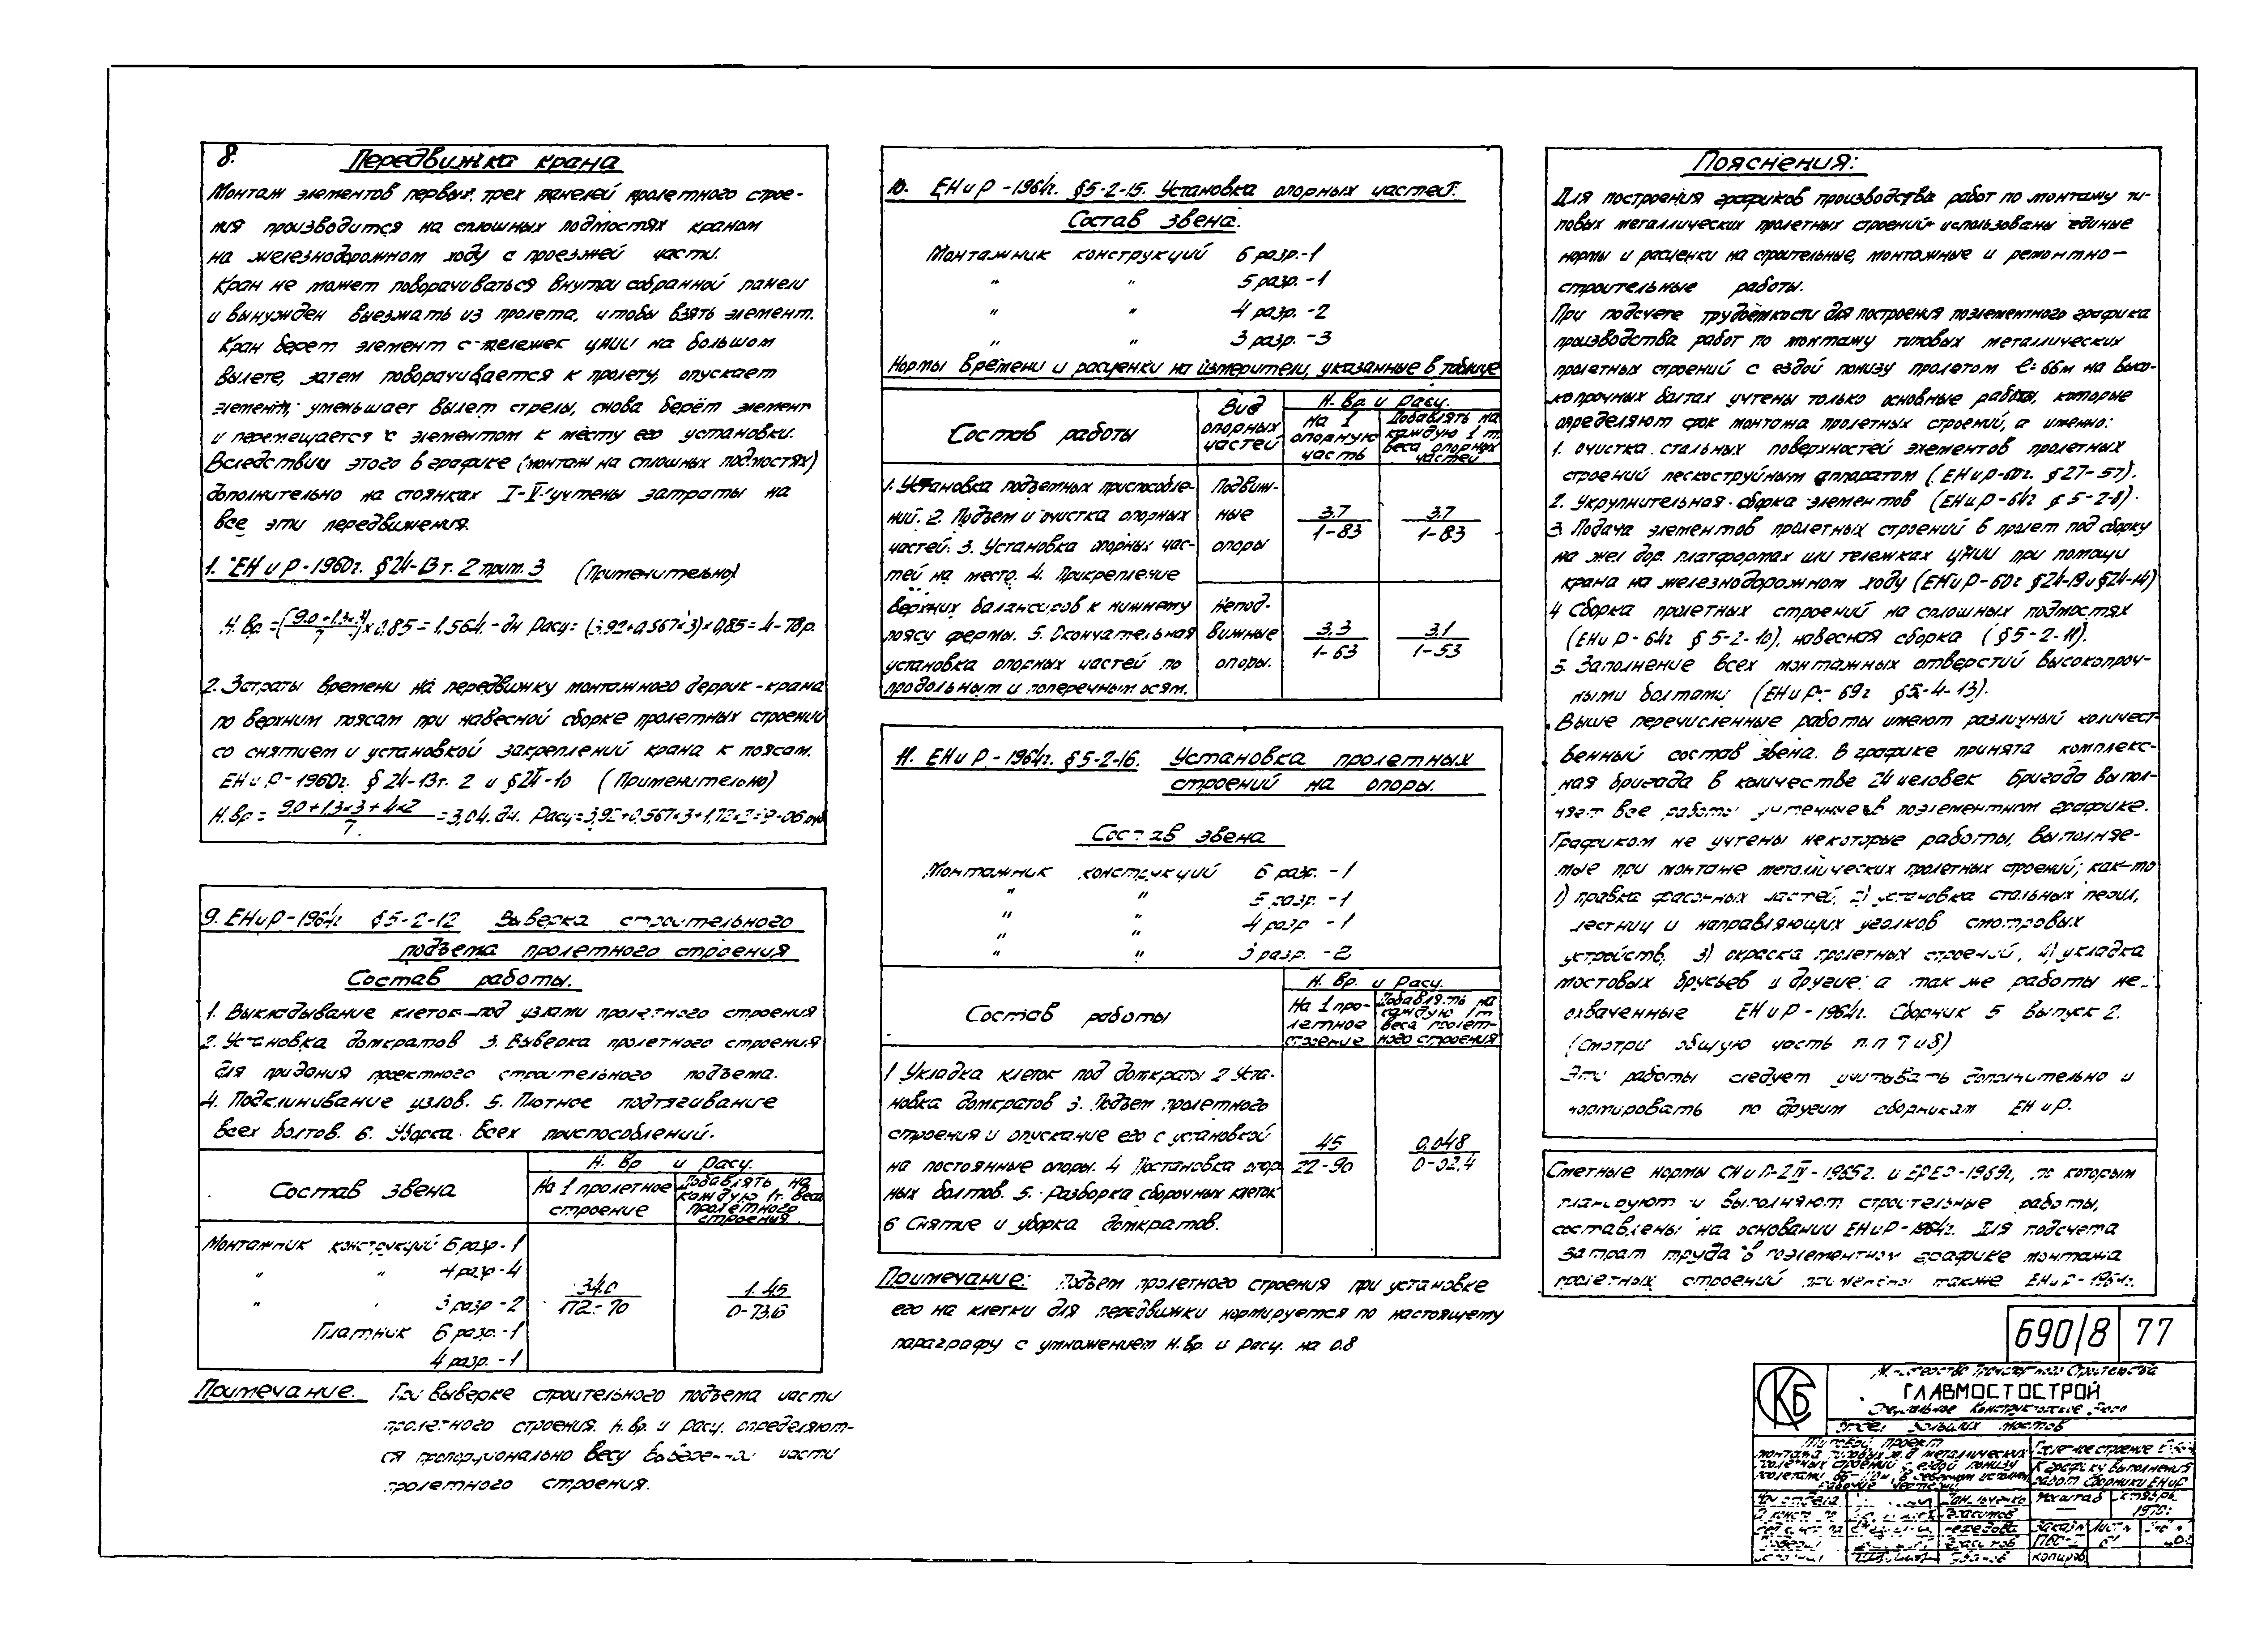 8. Передвижка крана
Монтаж элементов первых трех панелей пролетного строе-
ния производится на сплошных подмостях краном
на железнодорожном ходу с проезжей части.
Кран не может поворачиваться внутри собранной панели
и вынужден выезжать из пролета, чтобы взять элемент.
Кран берет элемент с тележек ЦНИИ на большом
вылете, затем поворачивается к пролету, опускает
элемент, уменьшает вылет стрелы, снова берёт элемент
и перемещается с элементом к месту его установки.
Вследствии этого в графике (монтаж на сплошных подмостях)
дополнительно на стоянках I-V учтены затраты на
все эти передвижения.
1. ЕНиР-1960г. §24-13 т. 2 прим. 3 (Применительно)
Н.вр=(9.0+1.3×3/7)×0,85=1.564.-дн Расц=(3.92+0.567×3)×0,85=4-78р.
2. Затраты времени на передвижку монтажного деррик-крана
по верхним поясам при навесной сборке пролетных строений
со снятием и установкой закреплений крана к поясам.
ЕНиР-1960г. §24-13т. 2 и §24-10 (Применительно)
Н.вр= 9.0+1.3×3+4×2/7. =3,04.дн. Расц=3,92+0,567×3+1,72×2=9-06
9. ЕНиР-1964г §5-2-12 Выверка строительного
подъема пролетного строения
Состав работы.
1. Выкладывание клеток под узлами пролетного строения
2. Установка домкратов 3. Выверка пролетного строения
для придания проектного строительного подъема.
4. Подклинивание узлов. 5. Плотное подтягивание
всех болтов. 6. Уборка всех приспособлений.
Состав звена
Н. вр и Расц.
На 1 пролетное строение
Добавлять на каждую 1т. веса пролетного строения.
Монтажник конструкций 6 разр-1
" " 4 разр-4
" " 3 разр-2
Плотник 6 разр.-1
4 разр.-1
340
172-70
1.45
0-73.6
Примечание. При выверке строительного подъема части
пролетного строения. Н.вр. и Расц. определяют-
ся пропорционально весу выверенной части
пролетного строения.
10. ЕНиР-1964г. §5-2-15. Установка опорных частей.
Состав звена.
Монтажник конструкций 6 разр.-1
" " 5 разр.-1
" " 4 разр.-2
" " 3 разр.-3
Нормы времени и расценки на измерители, указанные в таблице
Состав работы
Вид опорных частей
Н.вр. и Расц.
На 1 опорную часть
Добавлять на каждую 1 т. веса опорных частей
1. Установка подъемных приспособле-
ний. 2. Подъем и очистка опорных
частей. 3. Установка опорных час-
тей на место. 4. Прикрепление
верхних балансиров к нижнему
поясу фермы. 5. Окончательная
установка опорных частей по
продольным и поперечным осям.
Подвиж-
ные
опоры
3.7
1-83
3.7
1-83
Непод-
вижные
опоры.
3.3
1-63
3.1
1-53
11. ЕНиР-1964г. §5-2-16. Установка пролетных
строений на опоры.
Состав звена
Монтажник конструкций 6 разр.-1
" " 5 разр.-1
" " 4 разр-1
" " 3 разр.-2
Состав работы
Н.вр. и Расц.
На 1 пролетное строение
Добавлять на каждую 1т веса пролетного строения
1 Укладка клеток под домкраты 2 Уста-
новка домкратов 3. Подъем пролетного
строения и опускание его с установкой
на постоянные опоры. 4 Постановка опор
ных болтов. 5. Разборка сборочных клеток
6 Снятие и уборка домкратов.
45
22-90
0.048
0-02.4
Примечание: Подъем пролетного строения при установке
его на клетки для передвижки нормируется по настоящему
параграфу с умножением Н.вр. и Расц. на 0.8
Пояснения:
Для построения графиков производства работ по монтажу ти-
повых металлических пролетных строений использованы единые
нормы и расценки на строительные, монтажные и ремонтно-
строительные работы.
При подсчете трудоемкости для построения поэлементного графика
производства работ по монтажу типовых металлических
пролетных строений с ездой понизу пролетом ℓ=66м на высо-
копрочных болтах учтены только основные работы, которые
определяют срок монтажа пролетных строений, а именно:
1. Очистка стальных поверхностей элементов пролетных
строений пескоструйным аппаратом (ЕНиР-60г. §27-57).
2. Укрупнительная сборка элементов (ЕНиР-64г §5-2-8).
3. Подача элементов пролетных строений в пролет под сборку
на жел дор. платформах или тележках ЦНИИ при помощи
крана на железнодорожном ходу (ЕНиР-60г §24-19 и §24-14)
4 Сборка пролетных строений на сплошных подмостях
(ЕНиР-64г §5-2-10), навесная сборка (§5-2-11).
5. Заполнение всех монтажных отверстий высокопроч-
ными болтами (ЕНиР-69г §5-4-13).
Выше перечисленные работы имеют различный количест-
венный состав звена. В графике принята комплекс-
ная бригада в количестве 24 человек бригада выпол-
няет все работы учтенные в поэлементном графике.
Графиком не учтены некоторые работы, выполняе-
мые при монтаже металлических пролетных строений; как-то
1) правка фасонных частей, 2) установка стальных перил,
лестниц и направляющих уголков смотровых
устройств, 3) окраска пролетных строений, 4) укладка
мостовых брусьев и другие: а так же работы не
охваченные ЕНиР-1964г. Сборник 5 выпуск 2.
(Смотри общую часть п.п 7 и 8)
Эти работы следует учитывать дополнительно и
нормировать по другим сборникам ЕНиР.
Сметные нормы СНиП-2 IV-1965г. и ЕРЕР-1969г, по которым
планируют и выполняют строительные работы,
составлены на основании ЕНиР-1964г. Для подсчета
затрат труда в поэлементном графике монтажа
пролетных строений применены также ЕНиР-1964г.
690/8 77
СКБ
Министерство Транспортного Строительства
ГЛАВМОСТОСТРОЙ
Специальное Конструкторское Бюро
отдел больших мостов
Типовой проект
монтажа типовых ж.д металлических
пролетных строений с ездой понизу
Рабочие чертежи
Пролетное строение
К графику выполнения
работ Сборники ЕНиР
Масштаб
Октябрь
1970г.
Заказ№
Лист №
копиров